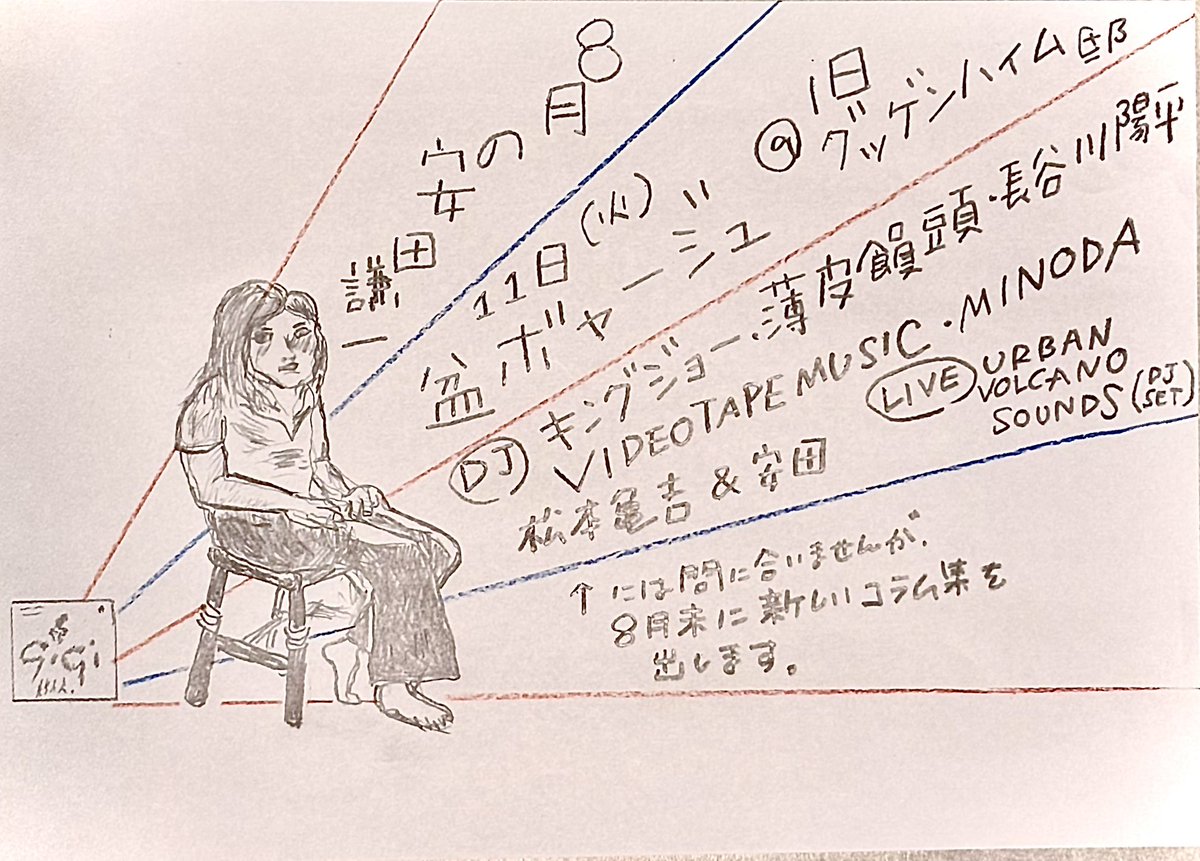 8月の安田謙一
11日(火) @旧グッゲンハイム邸
盆ボヤージュ
DJ キングジョー・薄皮饅頭・長谷川陽平
VIDEOTAPEMUSIC・MINODA
松本亀吉&安田
LIVE URBAN
VOLCANO
SOUNDS (DJ SET)
↑には間に合いませんが、
8月末に新しいコラム集を
出します。
GiGi